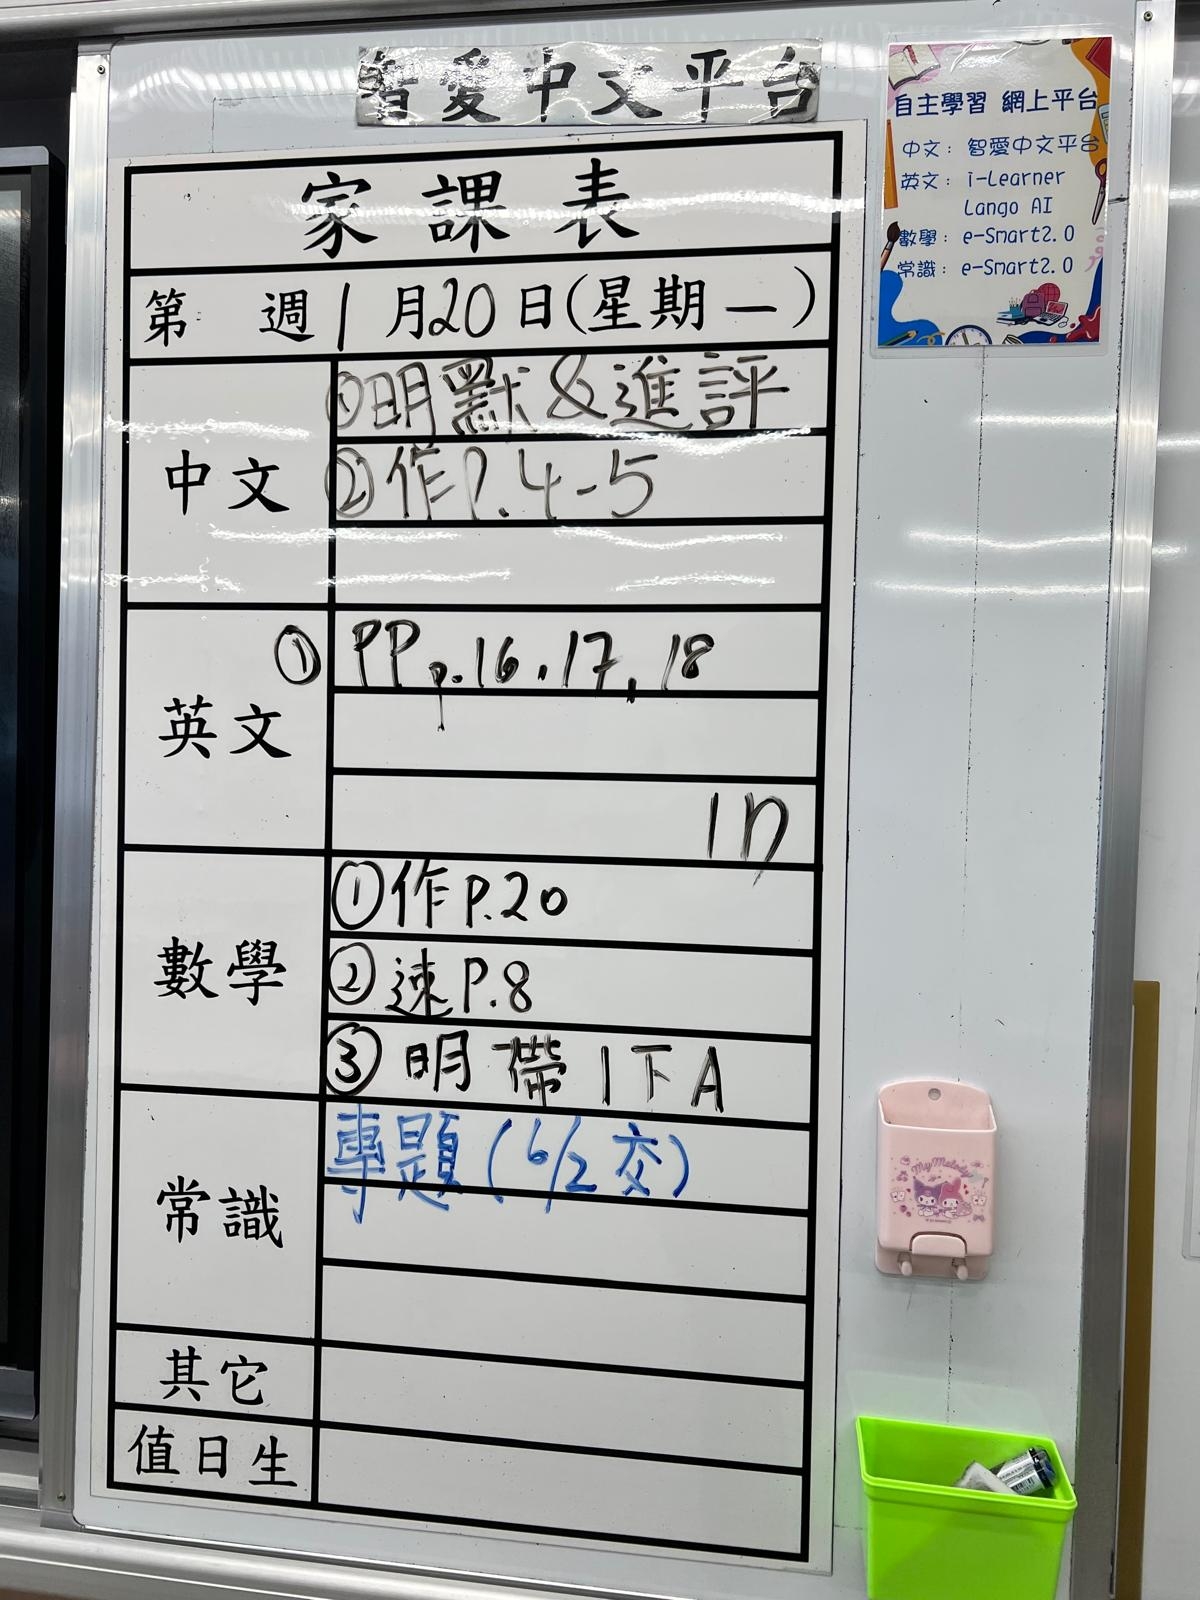 智愛中文平台
自主學習 網上平台
中文：智愛中文平台
英文：i-Learner
Lango AI
數學：e-Smart2.0
常識：e-Smart2.0
家課表
第 週 1月20日(星期一)
中文
①明默&進評
②作P.4-5
英文
① PP p.16.17,18
1n
數學
①作P.20
②速P.8
③明帶1下A
常識
專題(6/2交)
其它
值日生
My Melody